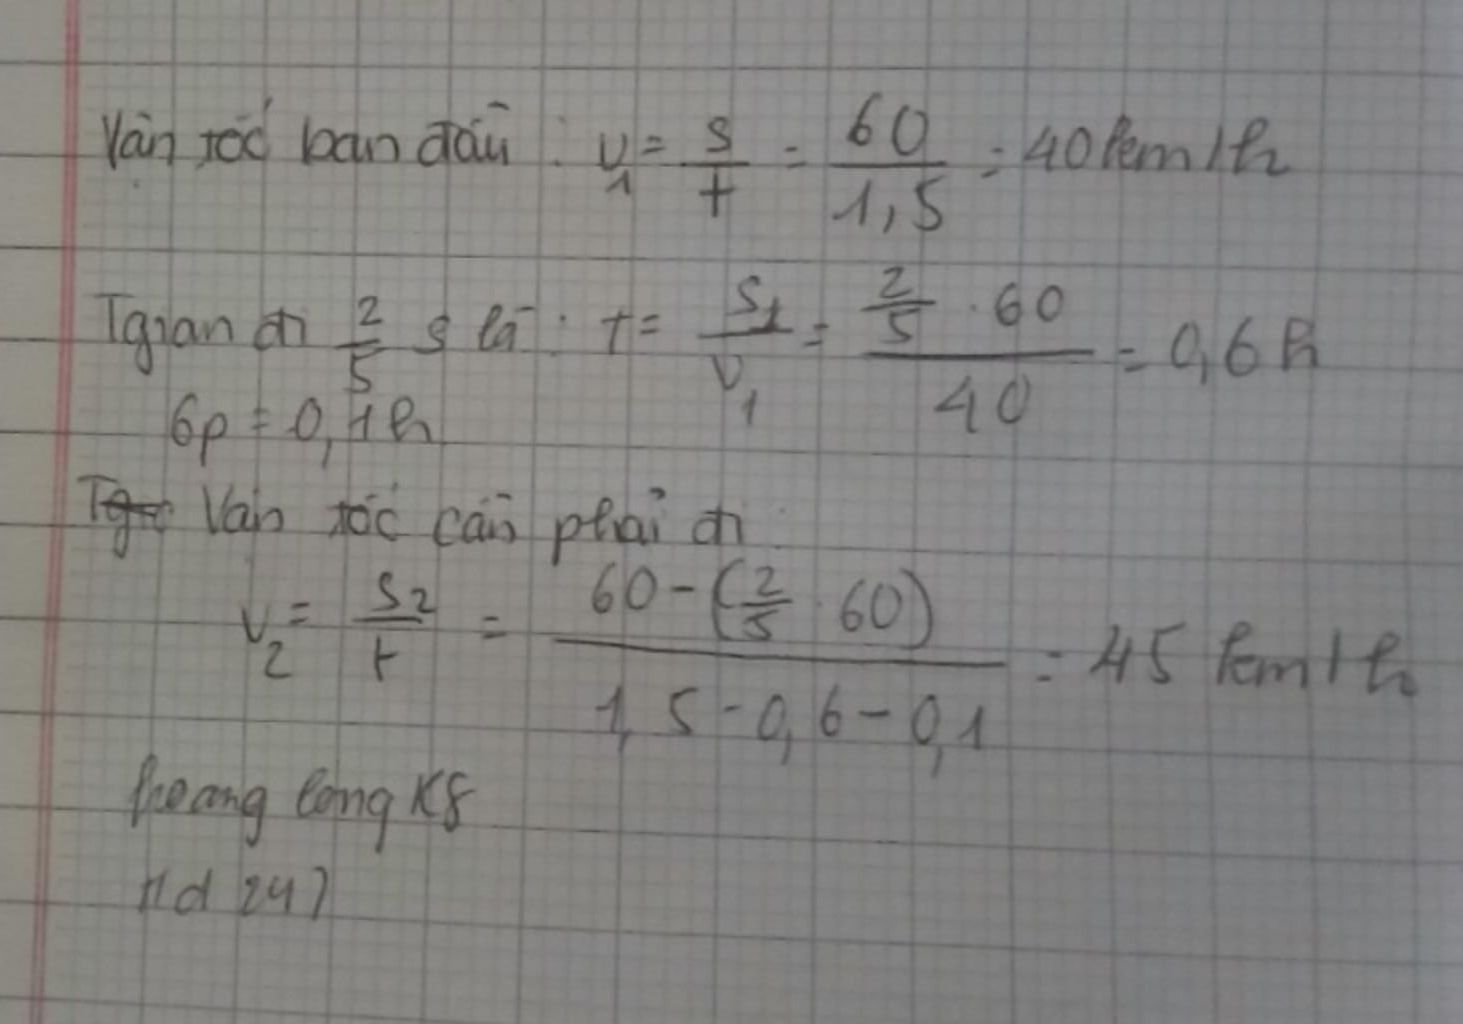 Vận tốc ban đầu : v₁ = s/t = 60/1,5 = 40 km/h
Tgian đi 2/5 s là : t = s₁/v₁ = (2/5 · 60)/40 = 0,6 h
6p = 0,1h
Vận tốc cần phải đi :
v₂ = s₂/t = (60 - (2/5 · 60))/(1,5 - 0,6 - 0,1) = 45 km/h
hoang long K8
Hd 247